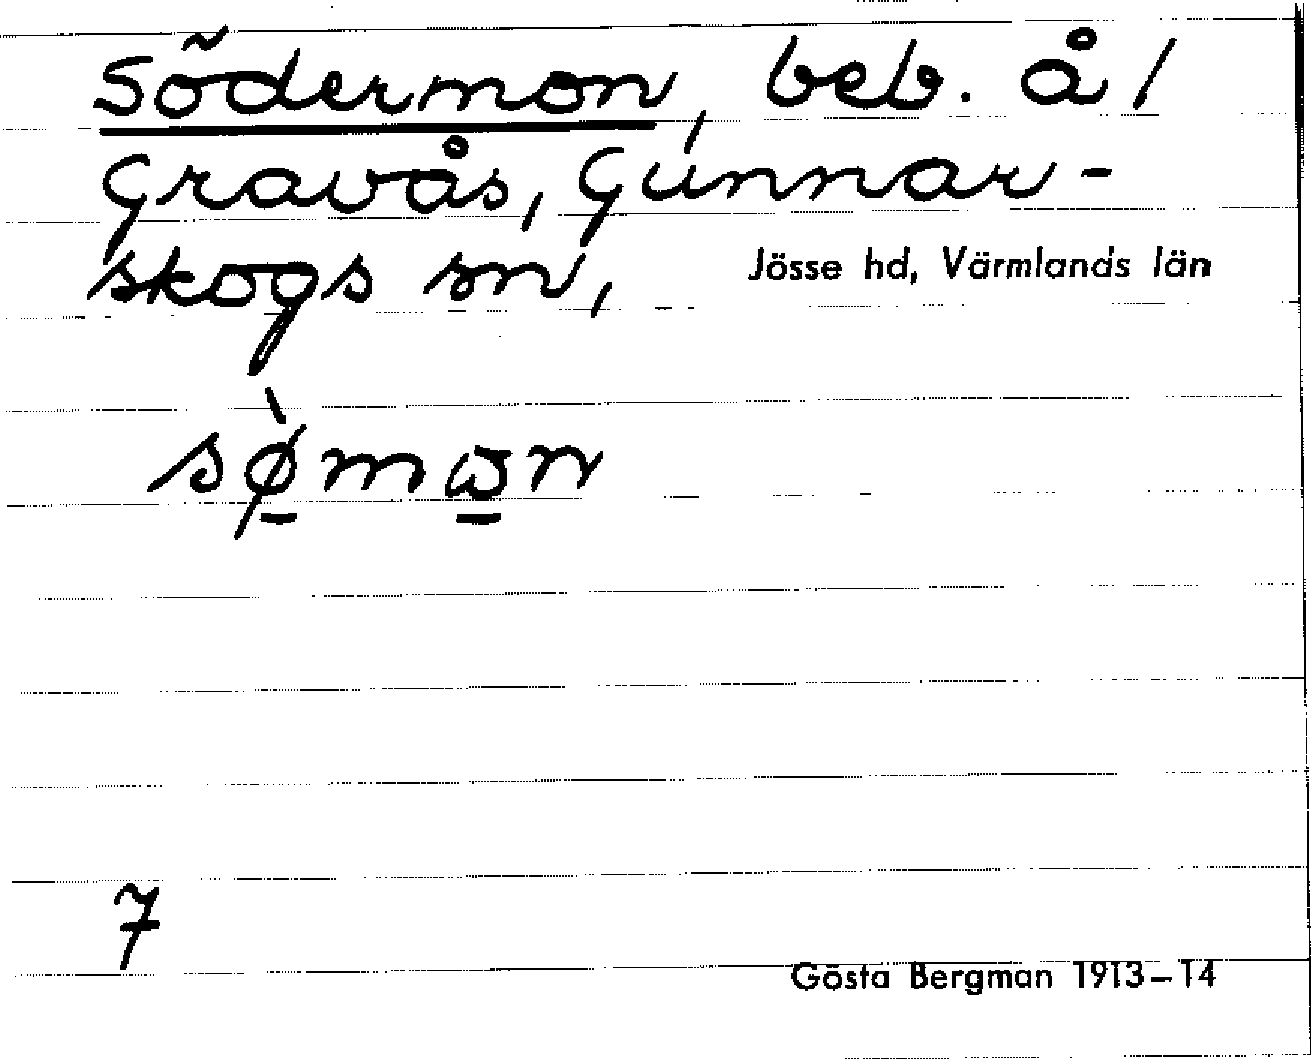 Södermon, beb. å /
Gravås, Gunnar-
skogs sn,
Jösse hd, Värmlands län
sø̠̀mꞷ̠n
7
Gösta Bergman 1913–14